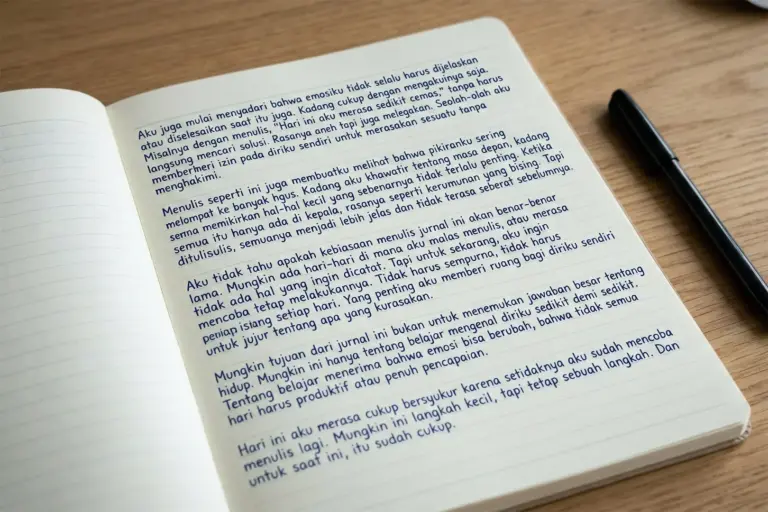 Aku juga mulai menyadari bahwa emosiku tidak selalu harus dijelaskan
atau diselesaikan saat itu juga. Kadang cukup dengan mengakuinya saja.
Misalnya dengan menulis, "Hari ini aku merasa sedikit cemas," tanpa harus
langsung mencari solusi. Rasanya aneh tapi juga melegakan. Seolah-olah aku
memberheri izin pada diriku sendiri untuk merasakan sesuatu tanpa
menghakimi.
Menulis seperti ini juga membuatku melihat bahwa pikiranku sering
melompat ke banyak hgus. Kadang aku khawatir tentang masa depan, kadang
semna memikirkan hal-hal kecil yang sebenarnya tidak terlalu penting. Ketika
semua itu hanya ada di kepala, rasanya seperti kerumunan yang bising. Tapi
ditulisulis, semuanya menjadi lebih jelas dan tidak terasa seberat sebelumnya.
Aku tidak tahu apakah kebiasaan menulis jurnal ini akan benar-benar
lama. Mungkin ada hari-hari di mana aku malas menulis, atau merasa
tidak ada hal yang ingin dicatat. Tapi untuk sekarang, aku ingin
mencoba tetap melakukannya. Tidak harus sempurna, tidak harus
islang setiap hari. Yang penting aku memberi ruang bagi diriku sendiri
untuk jujur tentang apa yang kurasakan.
Mungkin tujuan dari jurnal ini bukan untuk menemukan jawaban besar tentang
hidup. Mungkin ini hanya tentang belajar mengenal diriku sedikit demi sedikit.
Tentang belajar menerima bahwa emosi bisa berubah, bahwa tidak semua
hari harus produktif atau penuh pencapaian.
Hari ini aku merasa cukup bersyukur karena setidaknya aku sudah mencoba
menulis lagi. Mungkin ini langkah kecil, tapi tetap sebuah langkah. Dan
untuk saat ini, itu sudah cukup.